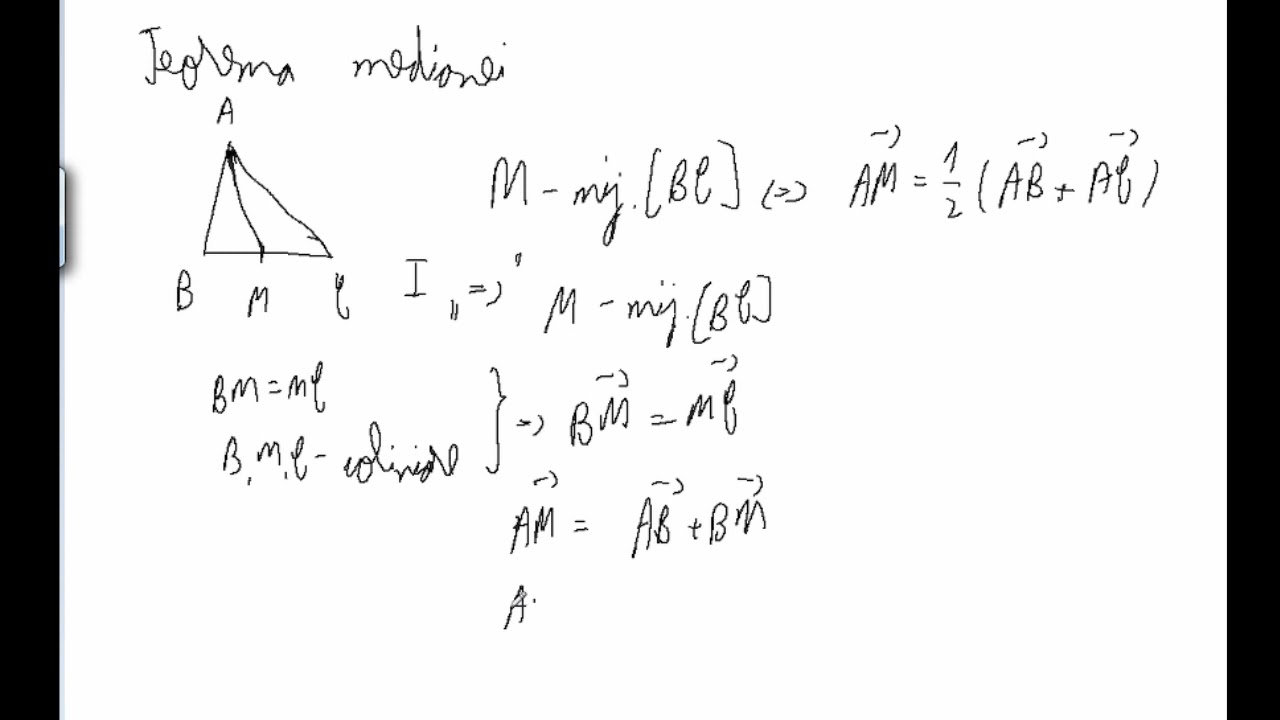 Teorema medianei
A
B M C
M - mij. [BC] <=> AM⃗ = 1/2 (AB⃗ + AC⃗)
I „=>" M - mij. [BC]
BM = MC
B, M, C - coliniare } => BM⃗ = MC⃗
AM⃗ = AB⃗ + BM⃗
A